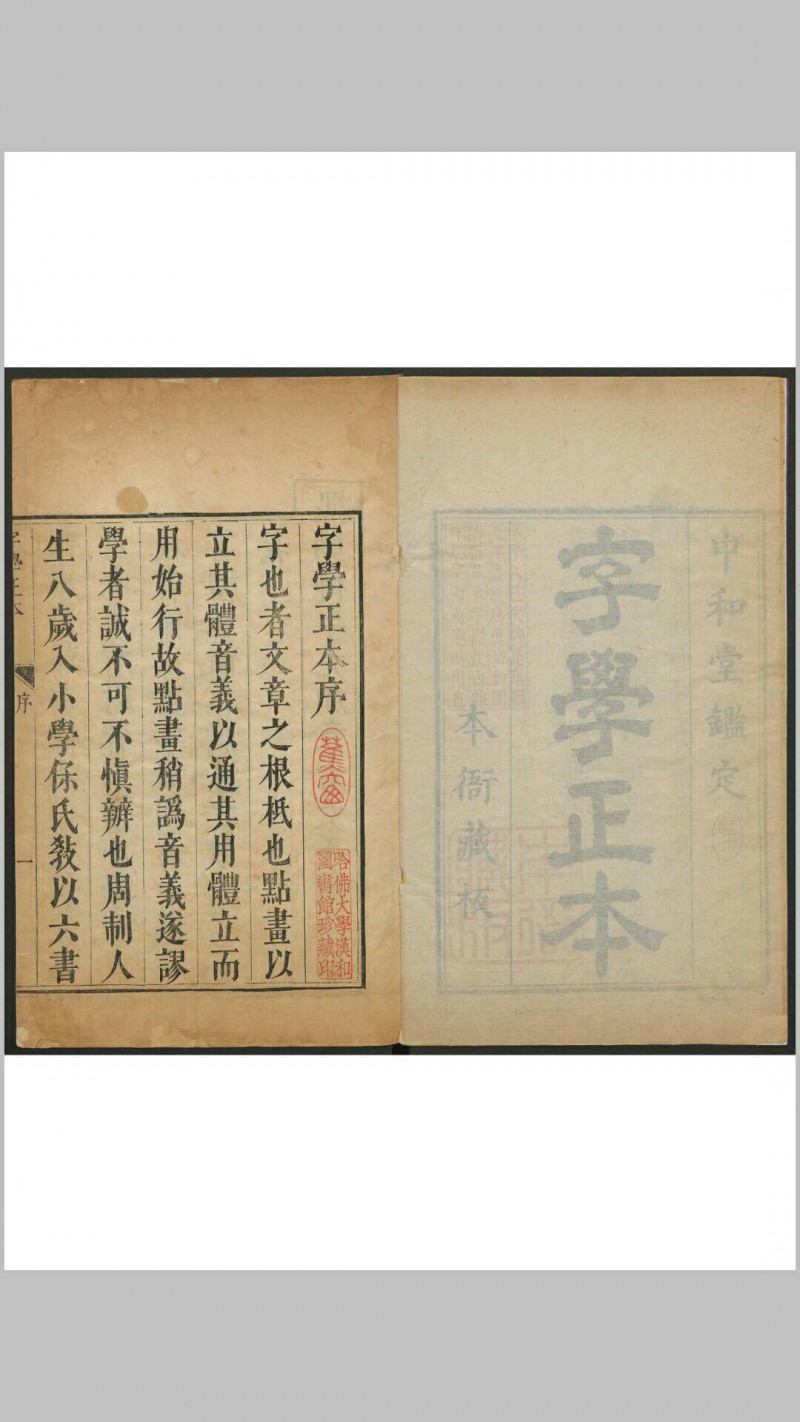 中和堂鑑定
字學正本
本衙藏板
字學正本序
哈佛大學漢和
圖書館珍藏印
字也者文章之根柢也點畫以
立其體音義以通其用體立而
用始行故點畫稍譌音義遂謬
學者誠不可不愼辨也周制人
生八歲入小學保氏敎以六書
字學正本
序
一